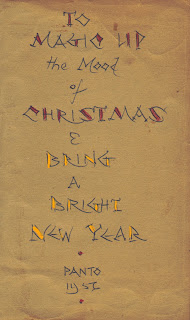 TO
MAGIC UP
the Mood
of
CHRISTMAS
&
BRING
A
BRIGHT
NEW YEAR
PANTO